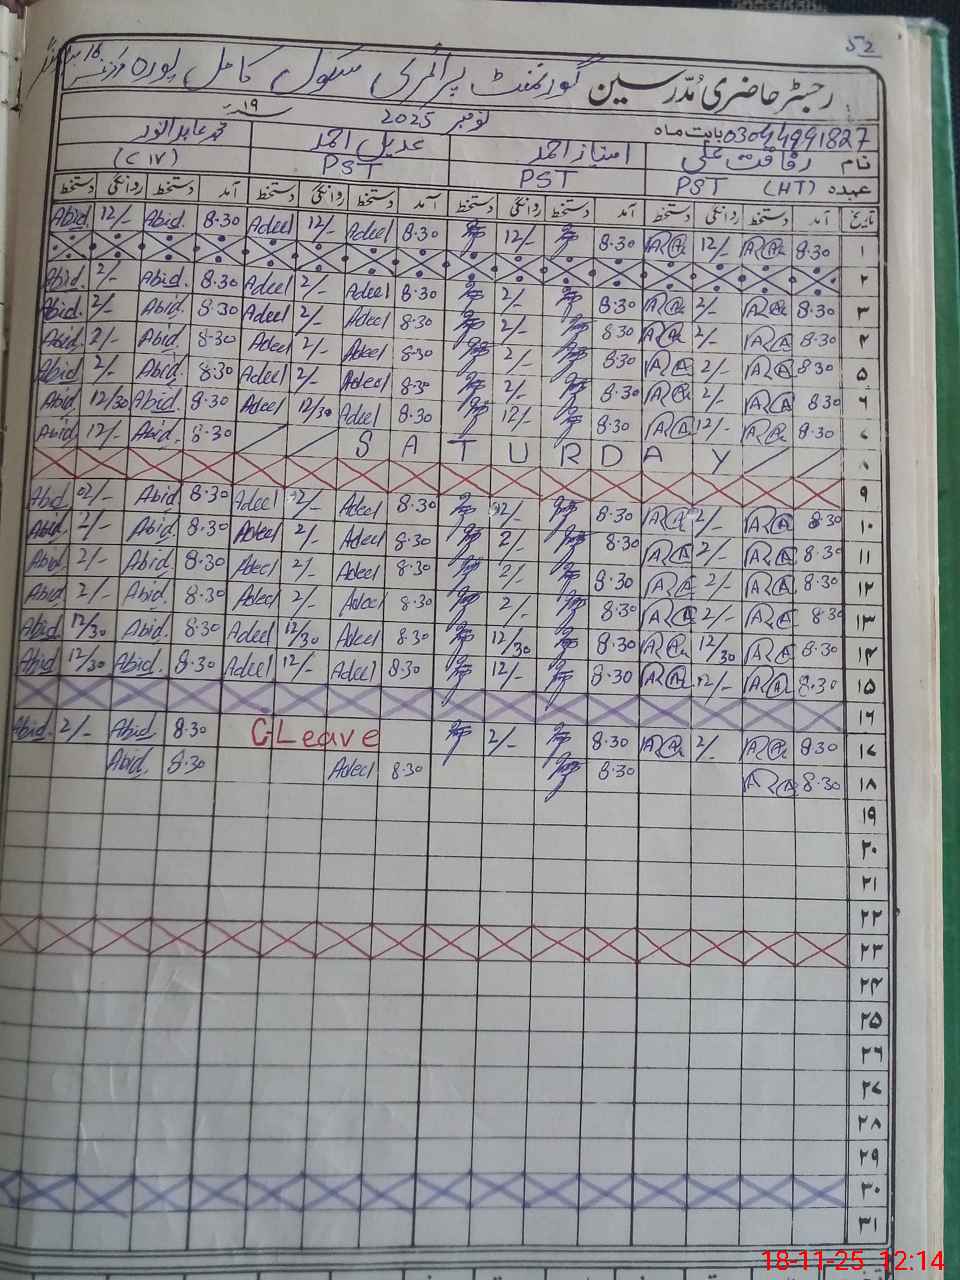 52
رجسٹر حاضری مُدّرسین گورنمنٹ پرائمری سکول کامل پورہ
03044991827 بابت ماہ نومبر 2025 ۱۹ء
نام رفاقت علی امتیاز احمد عدیل احمد محمد عابد انور
عہدہ PST (HT) PST PST (C IV)
تاریخ آمد دستخط روانگی دستخط آمد دستخط روانگی دستخط آمد دستخط روانگی دستخط آمد دستخط روانگی دستخط
۱ 8.30 12/- 8.30 12/- 8.30 Adeel 12/- Adeel 8.30 Abid. 12/- Abid.
۲
۳ 8.30 2/- 8.30 2/- 8.30 Adeel 2/- Adeel 8.30 Abid. 2/- Abid.
۴ 8.30 2/- 8.30 2/- 8.30 Adeel 2/- Adeel 8.30 Abid. 2/- Abid.
۵ 8.30 2/- 8.30 2/- 8.30 Adeel 2/- Adeel 8.30 Abid. 2/- Abid.
۶ 8.30 2/- 8.30 2/- 8.30 Adeel 2/- Adeel 8.30 Abid. 2/- Abid.
۷ 8.30 12/- 8.30 12/- 8.30 Adeel 12/30 Adeel 8.30 Abid. 12/30 Abid.
۸ SATURDAY 8.30 Abid. 12/- Abid.
۹
۱۰ 8.30 2/- 8.30 02/- 8.30 Adeel 02/- Adeel 8.30 Abid 02/- Abid
۱۱ 8.30 2/- 8.30 2/- 8.30 Adeel 2/- Adeel 8.30 Abid. 2/- Abid.
۱۲ 8.30 2/- 8.30 2/- 8.30 Adeel 2/- Adeel 8.30 Abid. 2/- Abid.
۱۳ 8.30 2/- 8.30 2/- 8.30 Adeel 2/- Adeel 8.30 Abid. 2/- Abid.
۱۴ 8.30 12/30 8.30 12/30 8.30 Adeel 12/30 Adeel 8.30 Abid. 12/30 Abid.
۱۵ 8.30 12/- 8.30 12/- 8.30 Adeel 12/- Adeel 8.30 Abid. 12/30 Abid.
۱۶
۱۷ 8.30 2/- 8.30 2/- C-Leave 8.30 Abid. 2/- Abid.
۱۸ 8.30 8.30 8.30 Adeel 8.30 Abid.
۱۹
۲۰
۲۱
۲۲
۲۳
۲۴
۲۵
۲۶
۲۷
۲۸
۲۹
۳۰
۳۱
18-11-25 12:14